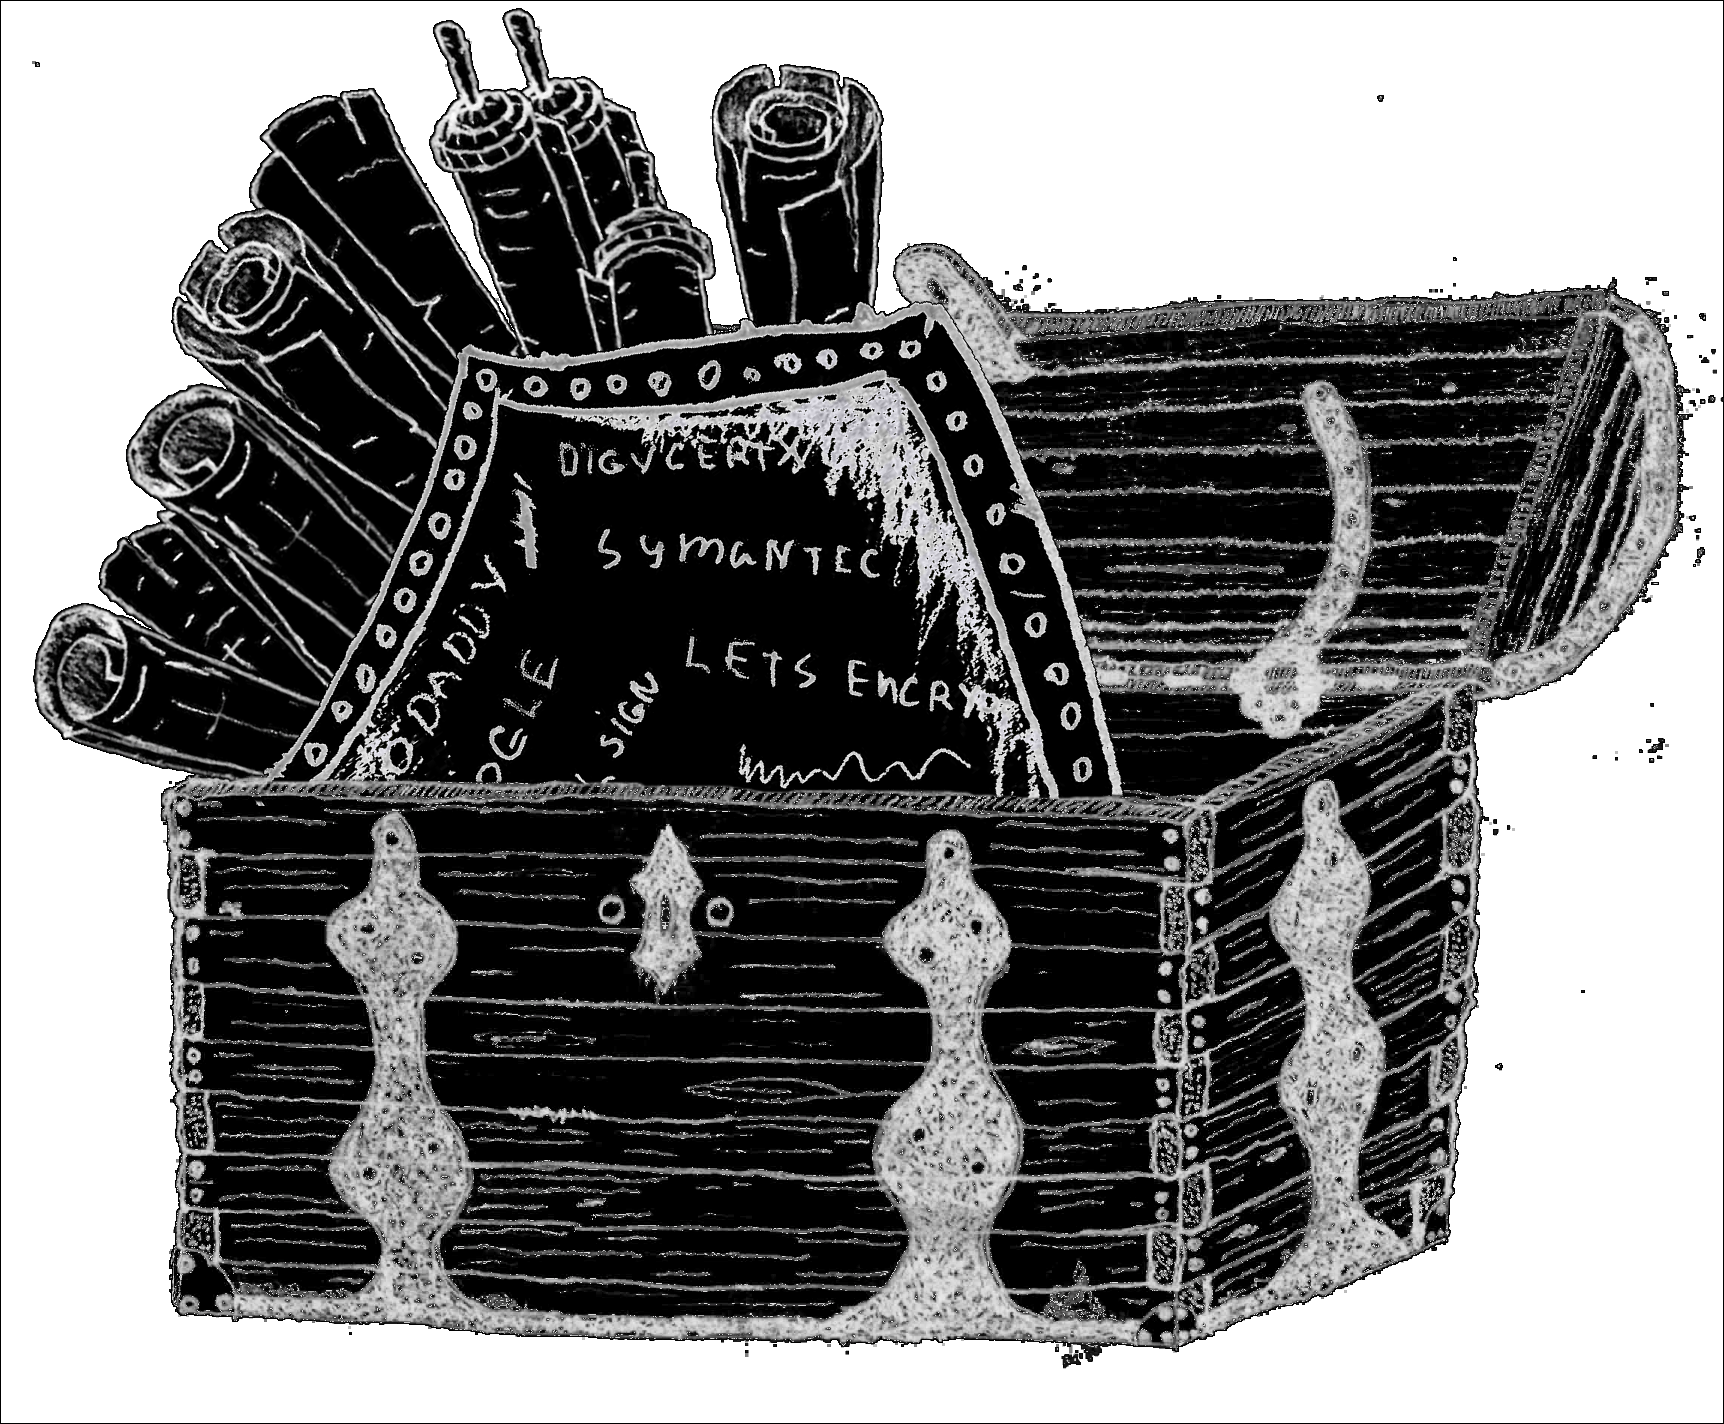 DIGVCERTX
SYMANTEC
LETS ENCRY
ODADDY
OGLE
SIGN